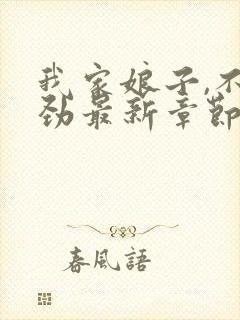 我家娘子,不
劲最新章節
春風語